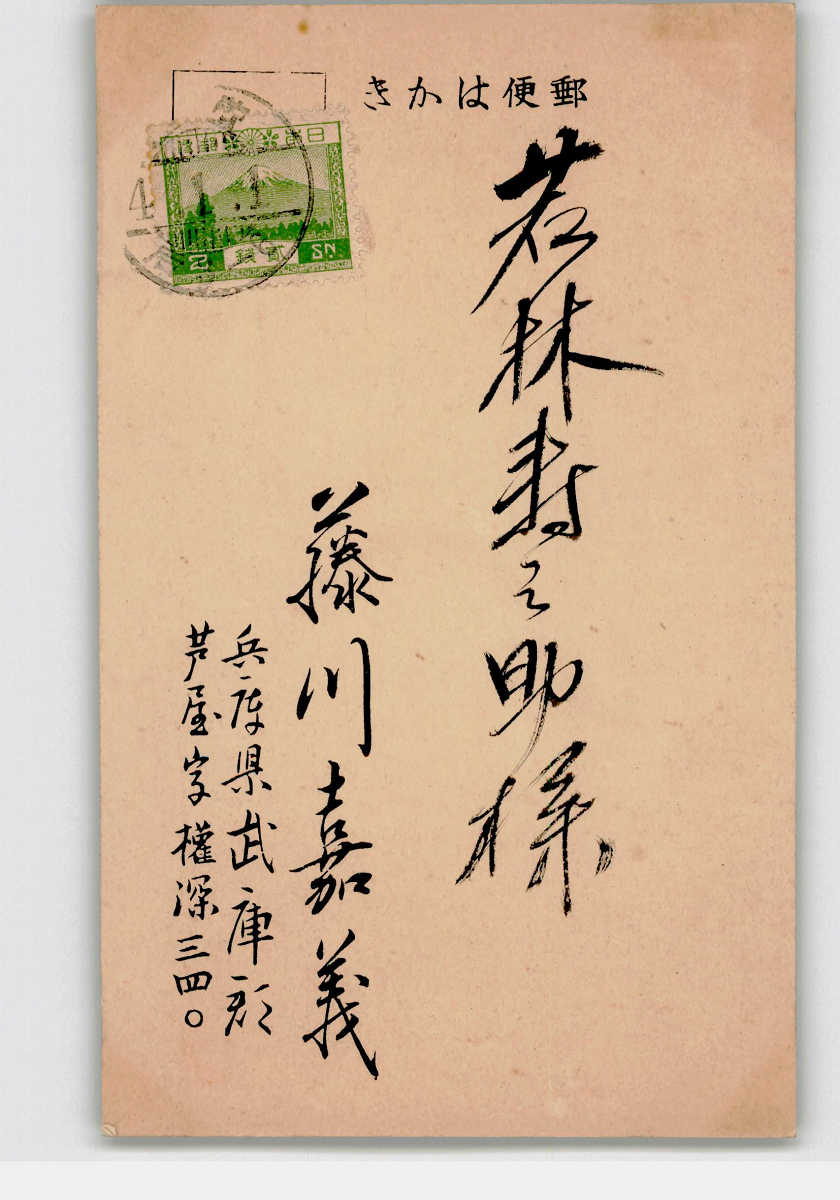 郵便はかき
若林寿之助様
藤川嘉義
兵庫県武庫郡
芦屋字權深三四〇
日本郵便
2 貳錢 SN
4 1.1